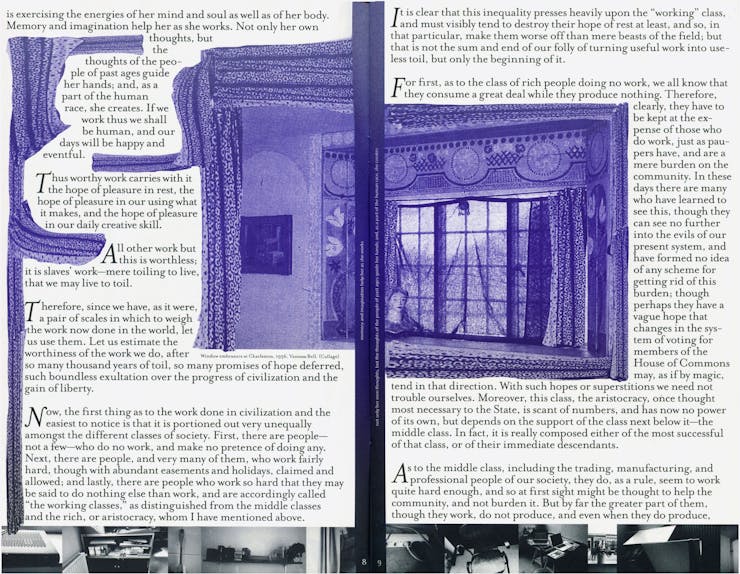 is exercising the energies of her mind and soul as well as of her body.
Memory and imagination help her as she works. Not only her own
thoughts, but
the
thoughts of the peo-
ple of past ages guide
her hands; and, as a
part of the human
race, she creates. If we
work thus we shall
be human, and our
days will be happy and
eventful.
Thus worthy work carries with it
the hope of pleasure in rest, the
hope of pleasure in our using what
it makes, and the hope of pleasure
in our daily creative skill.
All other work but
this is worthless;
it is slaves' work—mere toiling to live,
that we may live to toil.
Therefore, since we have, as it were,
a pair of scales in which to weigh
the work now done in the world, let
us use them. Let us estimate the
worthiness of the work we do, after
so many thousand years of toil, so many promises of hope deferred,
such boundless exultation over the progress of civilization and the
gain of liberty.
Now, the first thing as to the work done in civilization and the
easiest to notice is that it is portioned out very unequally
amongst the different classes of society. First, there are people—
not a few—who do no work, and make no pretence of doing any.
Next, there are people, and very many of them, who work fairly
hard, though with abundant easements and holidays, claimed and
allowed; and lastly, there are people who work so hard that they may
be said to do nothing else than work, and are accordingly called
"the working classes," as distinguished from the middle classes
and the rich, or aristocracy, whom I have mentioned above.
Window embrasure at Charleston, 1936, Vanessa Bell. (Collage)
memory and imagination help her as she works
8
9
not only her own thoughts, but the thoughts of the people of past ages guide her hands; and, as a part of the human race, she creates
It is clear that this inequality presses heavily upon the "working" class,
and must visibly tend to destroy their hope of rest at least, and so, in
that particular, make them worse off than mere beasts of the field; but
that is not the sum and end of our folly of turning useful work into use-
less toil, but only the beginning of it.
For first, as to the class of rich people doing no work, we all know that
they consume a great deal while they produce nothing. Therefore,
clearly, they have to
be kept at the ex-
pense of those who
do work, just as pau-
pers have, and are a
mere burden on the
community. In these
days there are many
who have learned to
see this, though they
can see no further
into the evils of our
present system, and
have formed no idea
of any scheme for
getting rid of this
burden; though
perhaps they have a
vague hope that
changes in the sys-
tem of voting for
members of the
House of Commons
may, as if by magic,
tend in that direction. With such hopes or superstitions we need not
trouble ourselves. Moreover, this class, the aristocracy, once thought
most necessary to the State, is scant of numbers, and has now no power
of its own, but depends on the support of the class next below it—the
middle class. In fact, it is really composed either of the most successful
of that class, or of their immediate descendants.
As to the middle class, including the trading, manufacturing, and
professional people of our society, they do, as a rule, seem to work
quite hard enough, and so at first sight might be thought to help the
community, and not burden it. But by far the greater part of them,
though they work, do not produce, and even when they do produce,